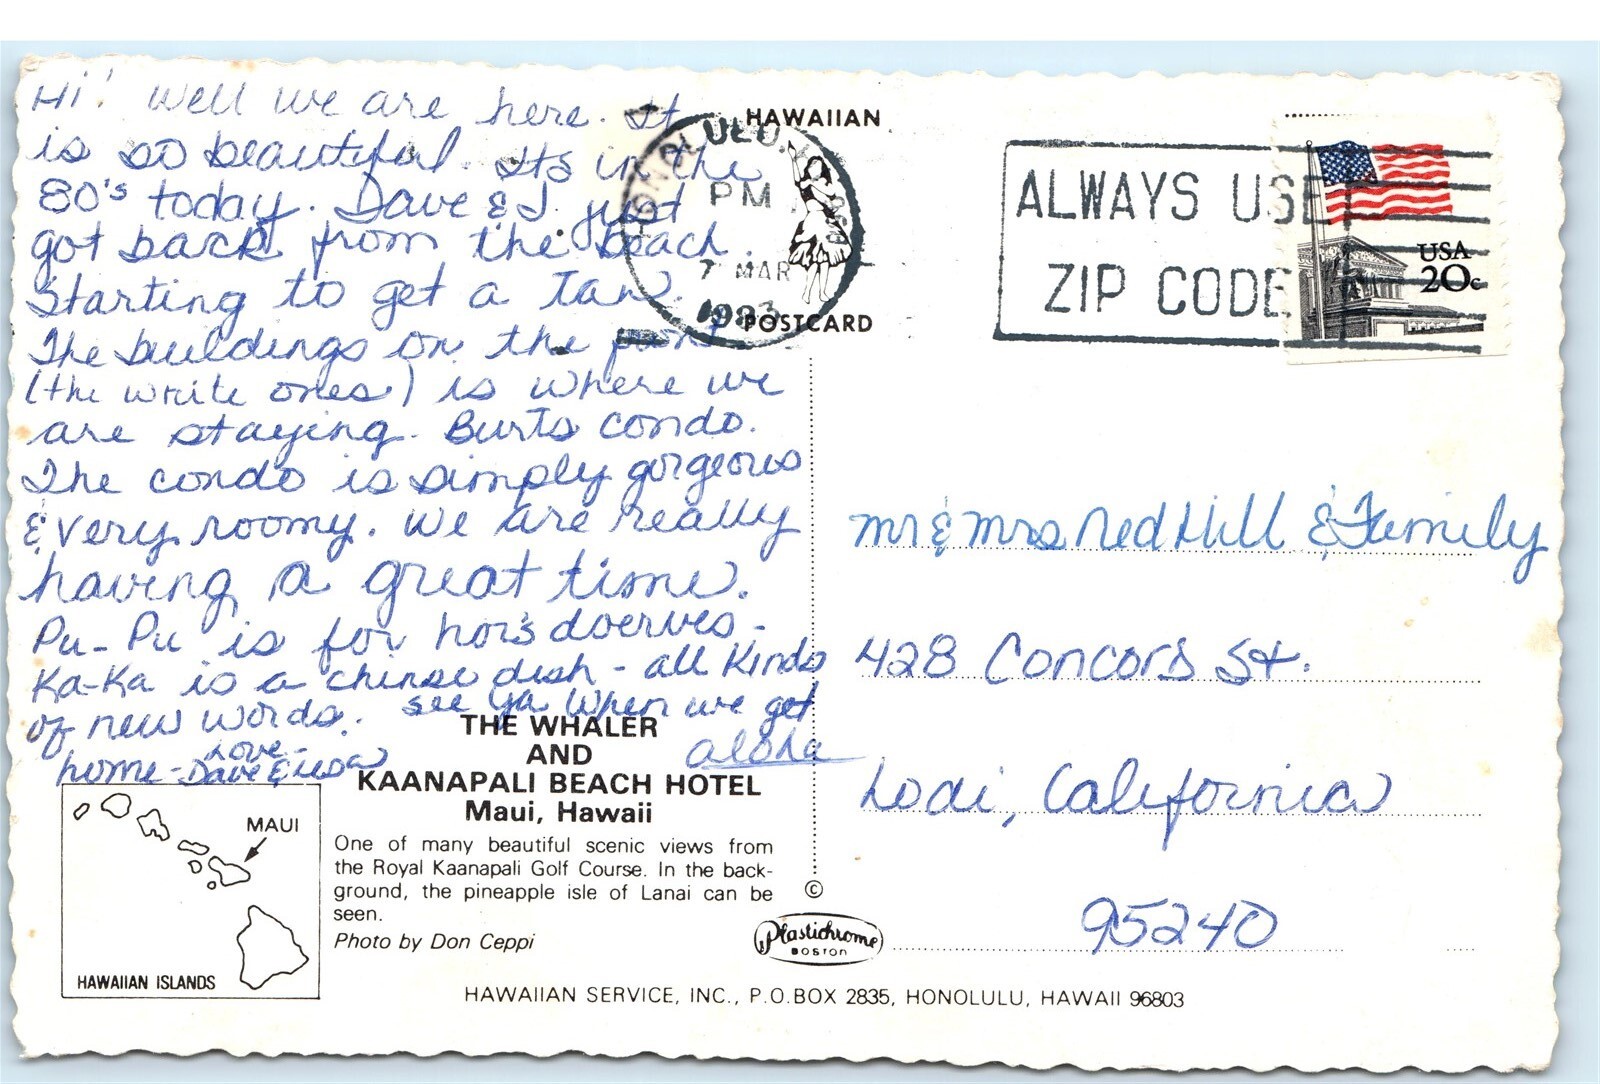 Hi! Well we are here. It
is so beautiful. Its in the
80's today. Dave & I just
got back from the beach.
Starting to get a tan.
The buildings on the front
(the write ones) is where we
are staying. Burts condo.
The condo is simply gorgeous
& very roomy. We are really
having a great time.
Pu-Pu is for hor's doerves-
Ka-Ka is a chinse dish - all kinds
of new words. See ya when we get
home - Love -
Dave & Lisa
aloha
HAWAIIAN
POSTCARD
PM
7 MAR
1983
ALWAYS USE
ZIP CODE
USA
20c
Mr & Mrs Ned Hill & Family
428 Concord St.
Lodi, California
95240
THE WHALER
AND
KAANAPALI BEACH HOTEL
Maui, Hawaii
One of many beautiful scenic views from
the Royal Kaanapali Golf Course. In the back-
ground, the pineapple isle of Lanai can be
seen.
Photo by Don Ceppi
MAUI
HAWAIIAN ISLANDS
©
Plastichrome
BOSTON
HAWAIIAN SERVICE, INC., P.O.BOX 2835, HONOLULU, HAWAII 96803